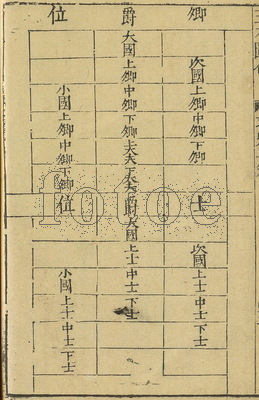 卿爵位
次國上卿中卿下卿
大國上卿中卿下卿
小國上卿中卿下卿
士爵位
次國上士中士下士
大國上士中士下士
小國上士中士下士
fotoe